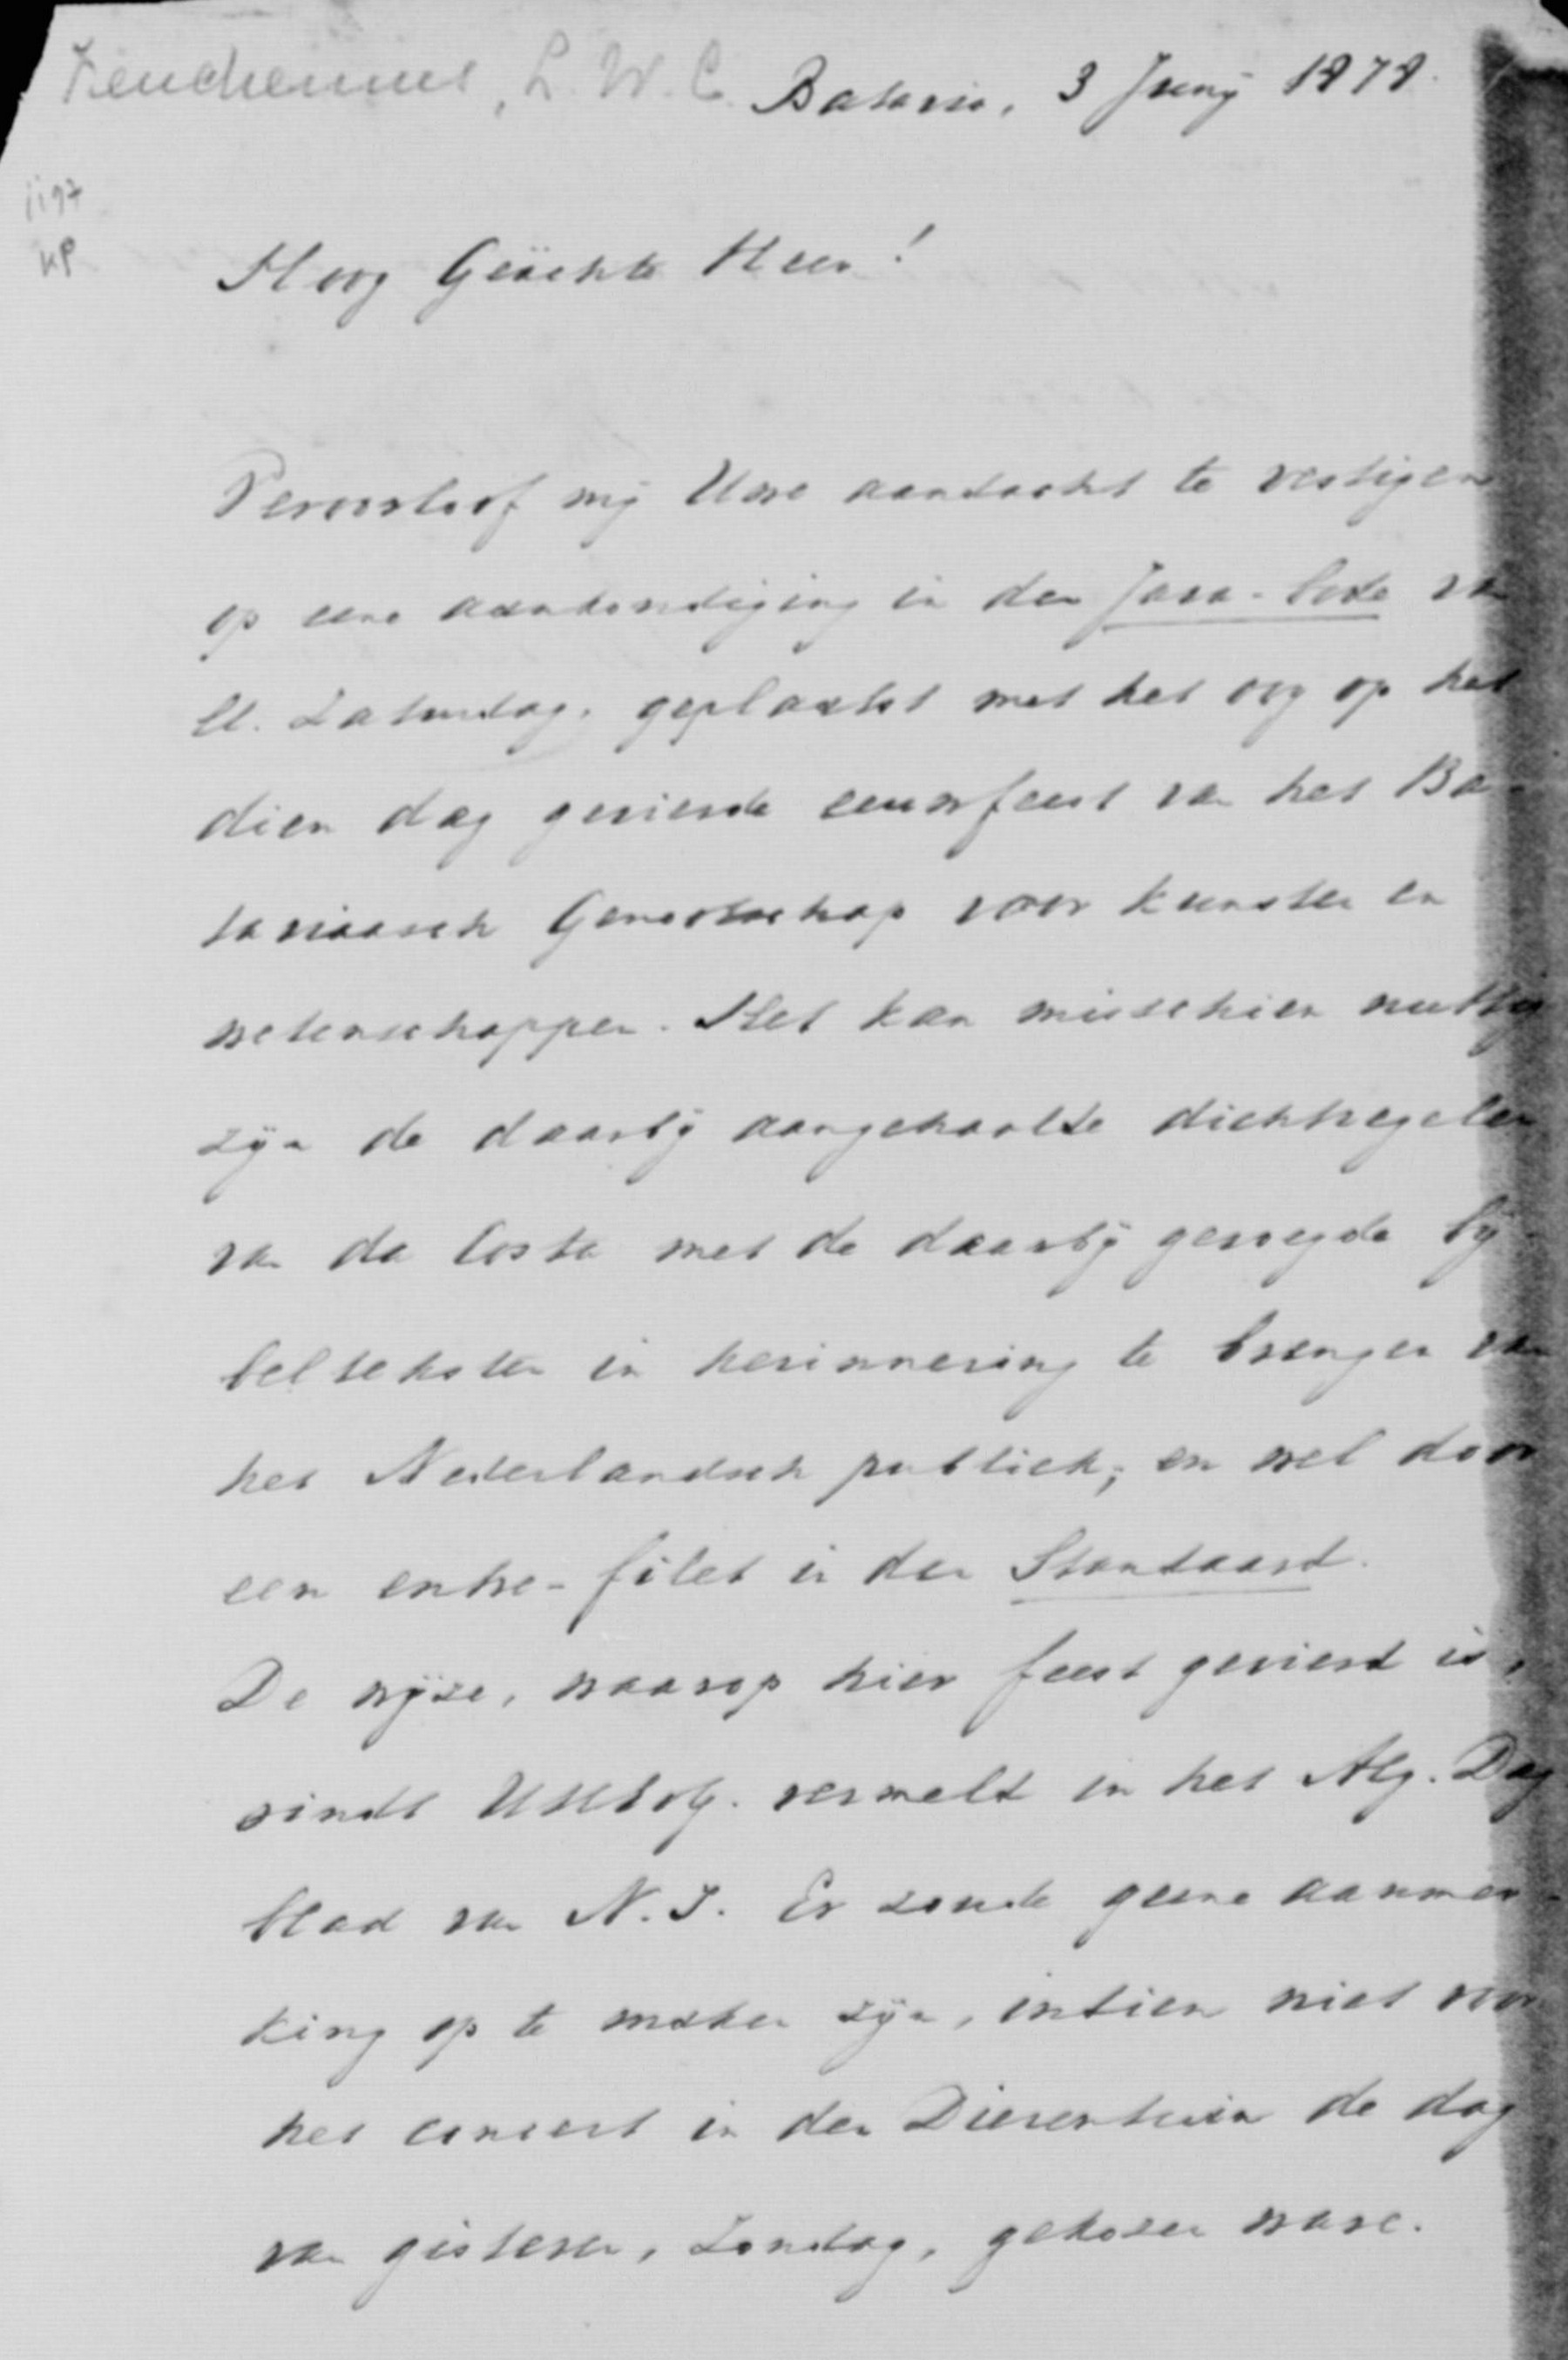 Keuchenius, L. W. C.
Batavia, 3 Junij 1878.
1197
KP
Hoog Geächte Heer!
Veroorloof mij Uwe aandacht te vestigen
op eene aankondiging in den Java-bode van
ll. Zaturdag, geplaatst met het oog op het
dien dag gevierde eeuwfeest van het Ba-
taviaasch Genootschap voor kunsten en
wetenschappen. Het kan misschien nuttig
zijn de daarbij aangehaalde dichtregelen
van da Costa met de daarbij gevoegde bij-
belteksten in herinnering te brengen van
het Nederlandsch publiek; en wel door
een entre-filet in den Standaard.
De wijze, waarop hier feest gevierd is,
vindt UHEdG. vermeld in het Alg. Dag
blad van N.I. Er zoude geene aanmer-
king op te maken zijn, indien niet voor
het concert in den Dierentuin de dag
van gisteren, Zondag, gekozen ware.